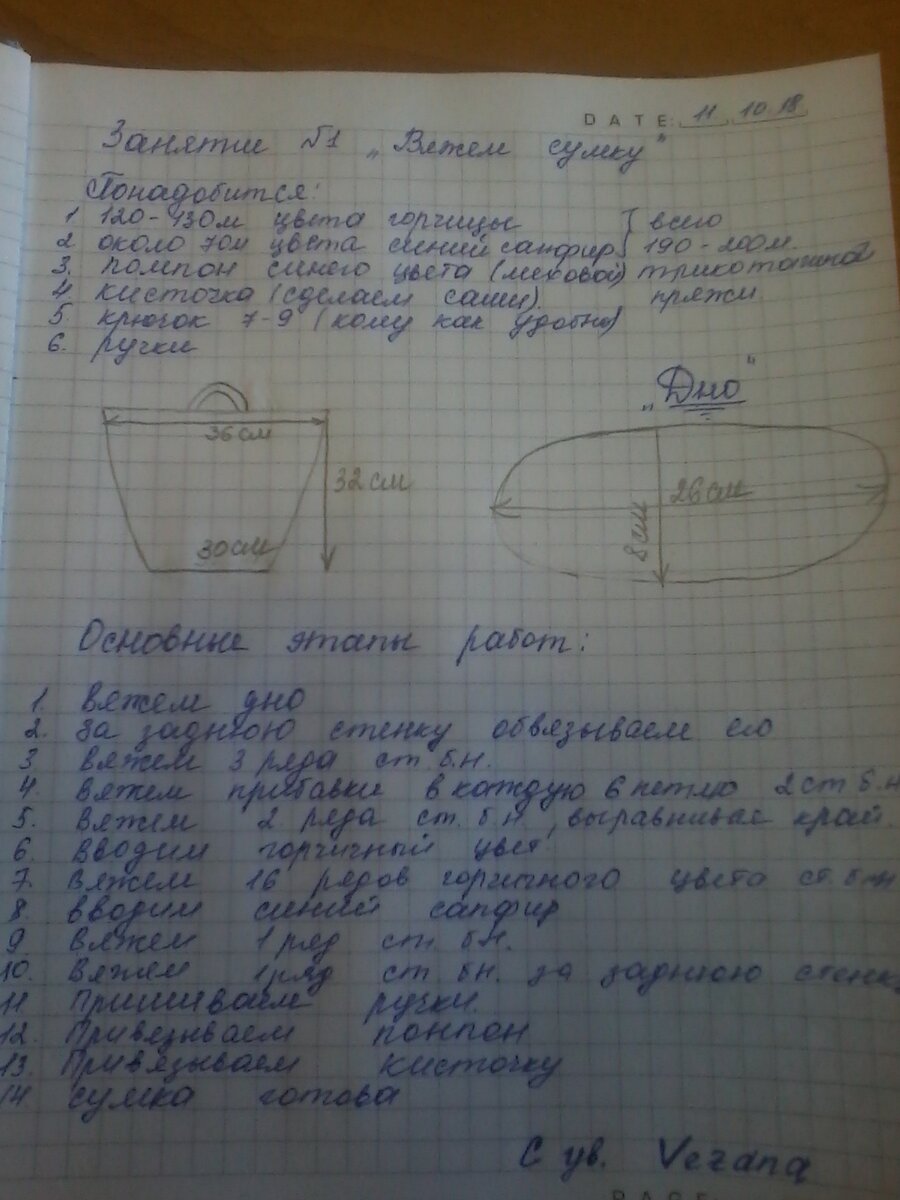 DATE: 11. 10. 18
Занятие №1 „Вяжем сумку"
Понадобится:
1 120-130м цвета горчицы } всего
2 около 70м цвета синий сапфир } 190-200м.
3. помпон синего цвета (меховой) трикотажной
4 кисточка (сделаем сами) пряжи.
5. крючок 7-9 (кому как удобно)
6. ручки
„Дно"
36 см
32 см
26 см
8 см
30 см
Основные этапы работ:
1. Вяжем дно
2. За заднюю стенку обвязываем его
3 Вяжем 3 ряда ст. б.н.
4 Вяжем прибавки в каждую 6 петлю 2 ст б.н
5. Вяжем 2 ряда ст. б н., выравнивая край.
6. Вводим горчичный цвет
7. Вяжем 16 рядов горчичного цвета ст. б.н
8. вводим синий сапфир
9. Вяжем 1 ряд ст. б.н.
10. Вяжем 1 ряд ст. бн. за заднюю стенк
11 Пришиваем ручки.
12. Привязываем понпон
13. Привязываем кисточку
14 сумка готова
С ув. Vezana
PAGE